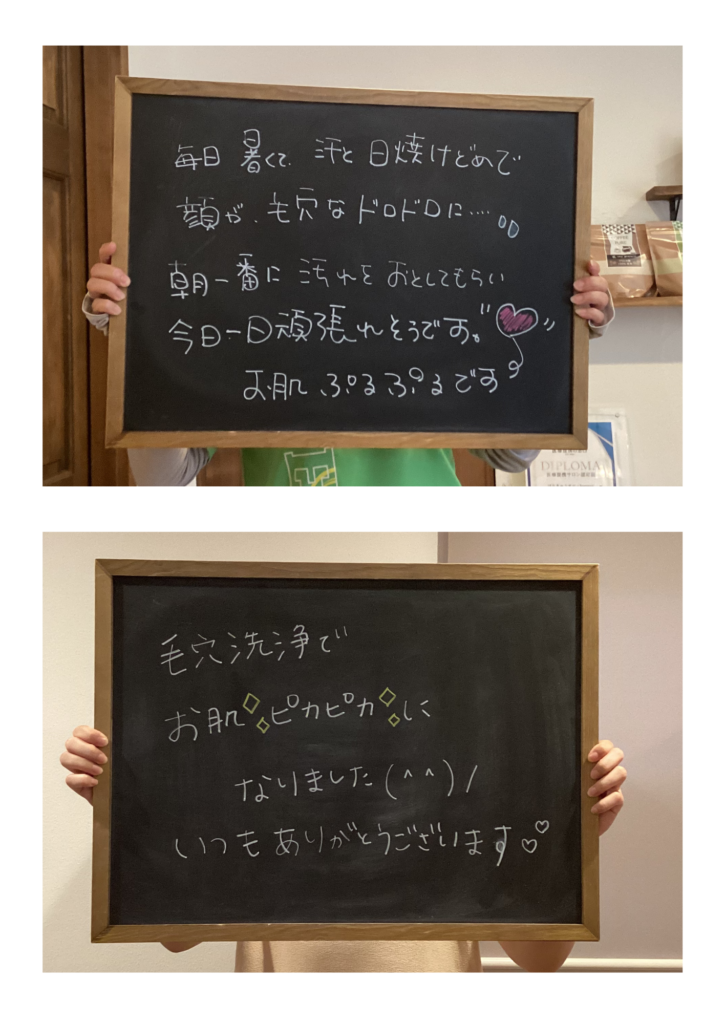 毎日 暑くて、汗と 日焼けどめで
顔が、毛穴な ドロドロに……
朝一番に 汚れを おとしてもらい
今日一日頑張れそうです。
お肌 ぷるぷるです
DIPLOMA
毛穴洗浄で
お肌 ピカピカ に
なりました(^^)/
いつもありがとうございます♡♡